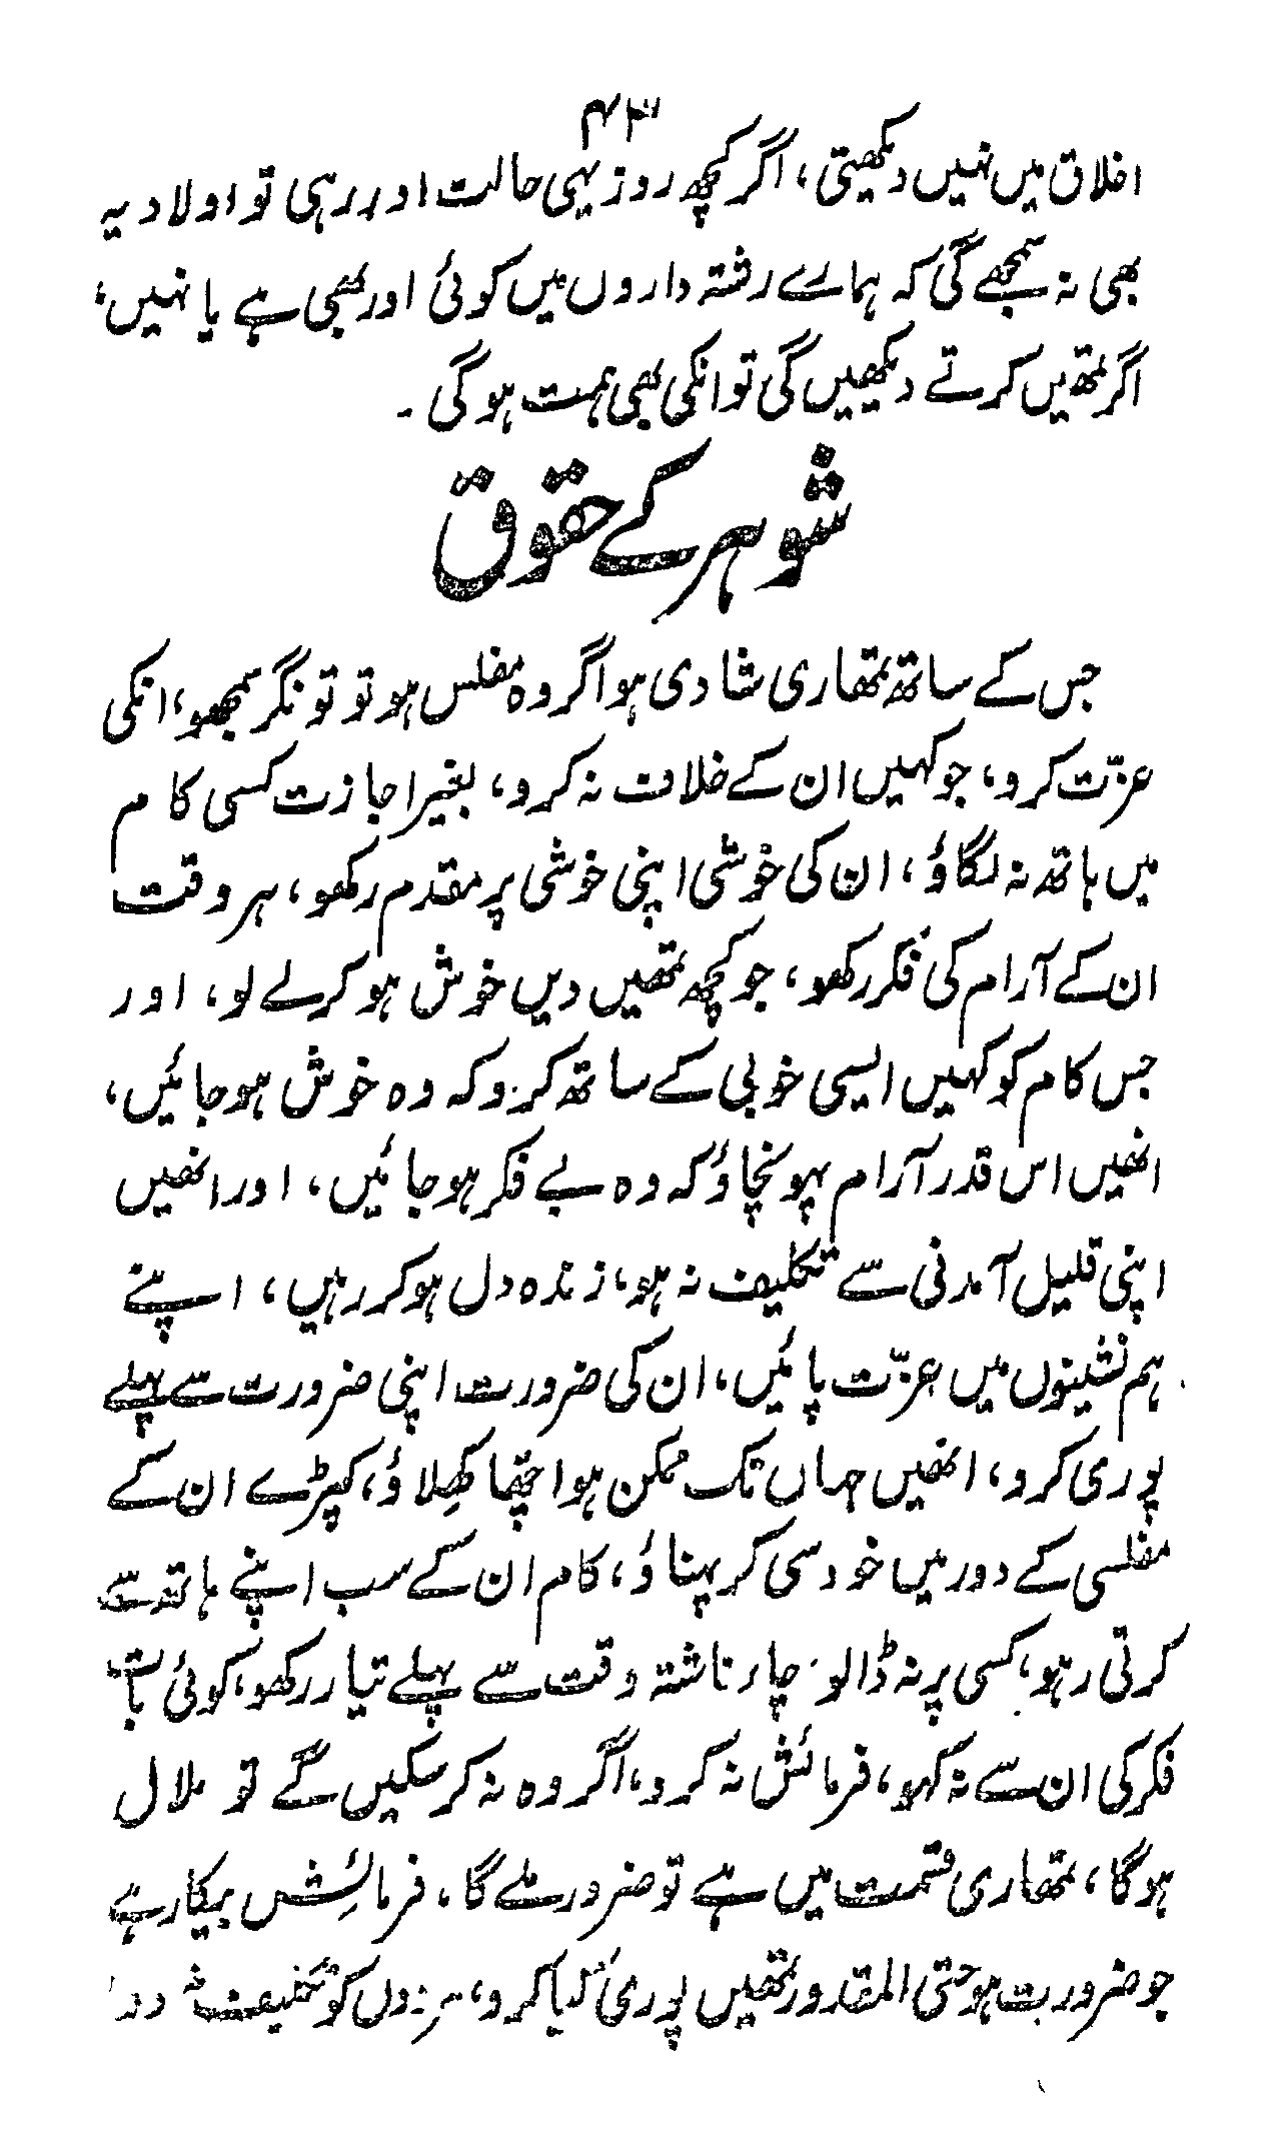 ۴۳
اخلاق میں نہیں دیکھیتی، اگر کچھ روز یہی حالت اور رہی تو اولاد یہ
بھی نہ سمجھے گی کہ ہمارے رشتہ داروں میں کوئی اور بھی ہے یا نہیں،
اگر تمھیں کرتے دیکھیں گی تو انکی بھی ہمت ہوگی ۔
شوہر کے حقوق
جس کے ساتھ تمھاری شادی ہو اگر وہ مفلس ہو تو تونگر سمجھو، انکی
عزّت کرو، جو کہیں ان کے خلاف نہ کرو، بغیر اجازت کسی کام
میں ہاتھ نہ لگاؤ، ان کی خوشی اپنی خوشی پر مقدم رکھو، ہر وقت
ان کے آرام کی فکر رکھو، جو کچھ تمھیں دیں خوش ہو کر لے لو، اور
جس کام کو کہیں ایسی خوبی کے ساتھ کرو کہ وہ خوش ہو جائیں،
انھیں اس قدر آرام پہونچاؤ کہ وہ بے فکر ہو جائیں، اور انھیں
اپنی قلیل آمدنی سے تکلیف نہ ہو، زندہ دل ہو کر رہیں، اپنے
ہم نشینوں میں عزّت پائیں، ان کی ضرورت اپنی ضرورت سے پہلے
پوری کرو، انھیں جہاں تک ممکن ہو اچّھا کھِلاؤ، کپڑے ان کے
مفلسی کے دور میں خود سی کر پہناؤ، کام ان کے سب اپنے ہاتھ سے
کرتی رہو، کسی پر نہ ڈالو۔ چاء ناشتہ وقت سے پہلے تیار رکھو، کوئی بات
فکر کی ان سے نہ کہو، فرمائش نہ کرو، اگر وہ نہ کر سکیں گے تو ملال
ہوگا، تمھاری قسمت میں ہے تو ضرور ملے گا، فرمائِش بیکار ہے
جو ضرورت ہو حتی المقدور تمھیں پوری کیا کرو، دل کو تکلیف نہ دو